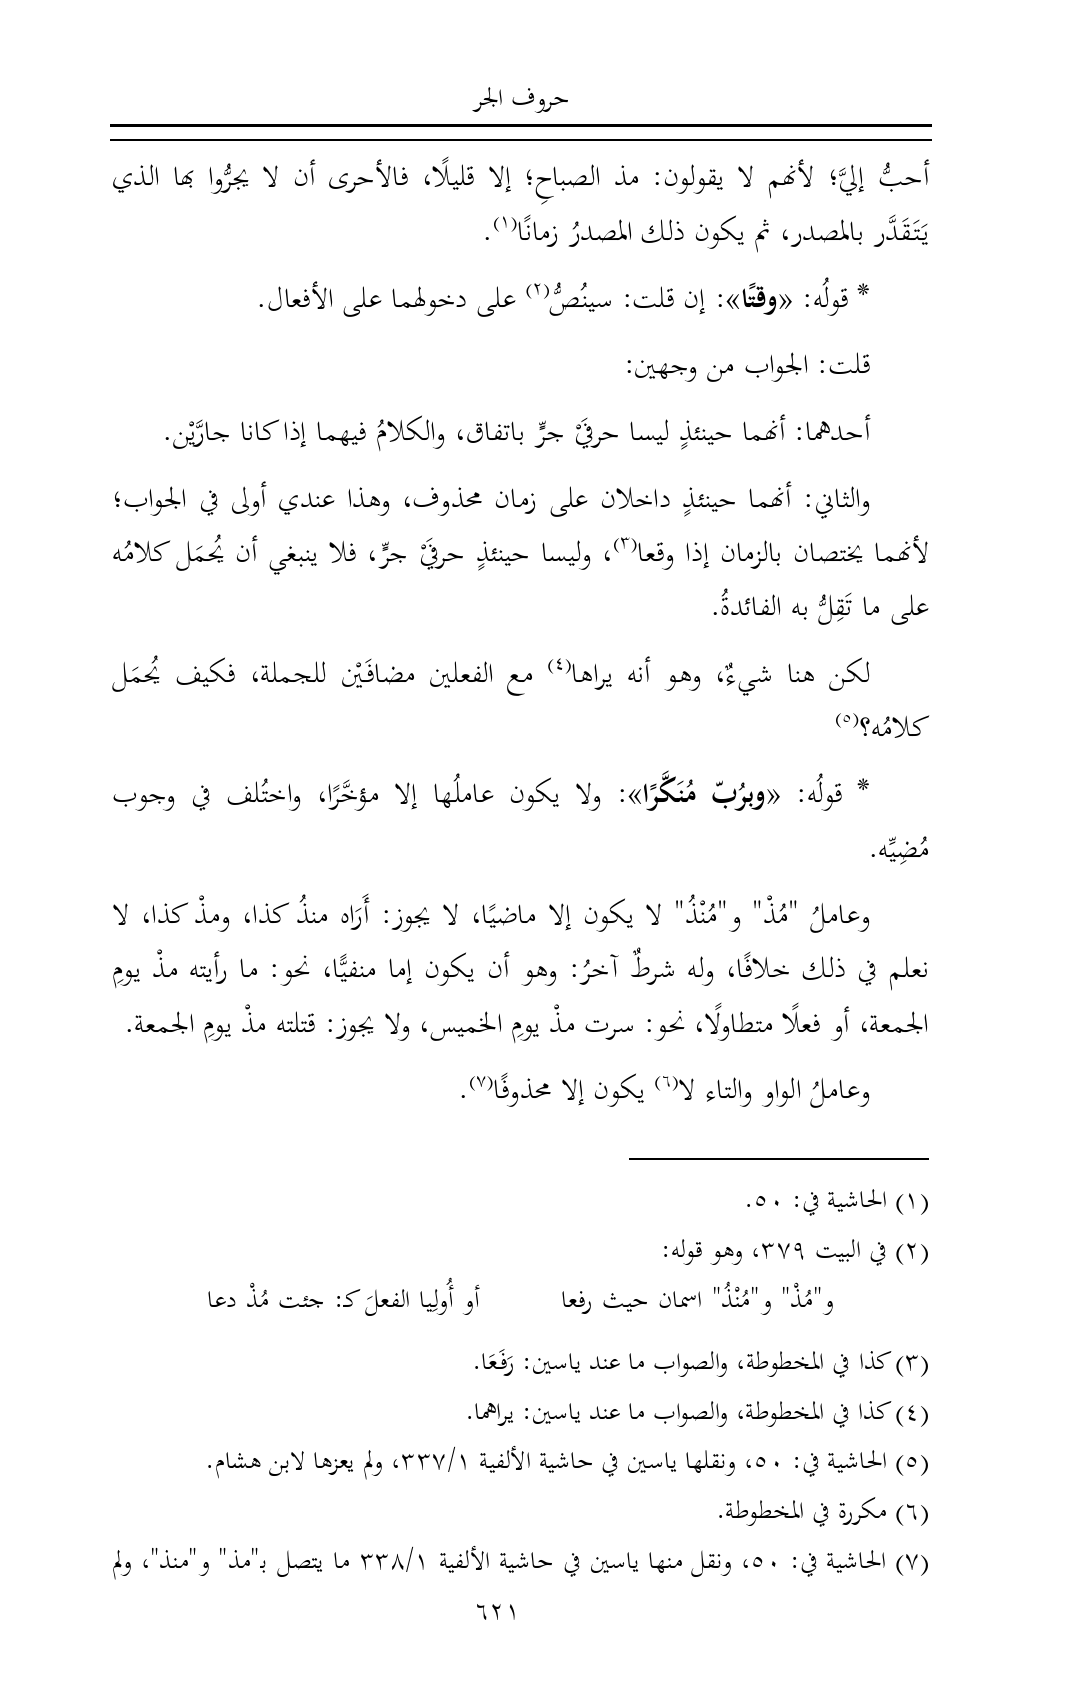 حروف الجر
أحبُّ إليَّ؛ لأنهم لا يقولون: مذ الصباحِ؛ إلا قليلًا، فالأحرى أن لا يجرُّوا بها الذي
يَتَقَدَّر بالمصدر، ثم يكون ذلك المصدرُ زمانًا(١).
* قولُه: «وقتًا»: إن قلت: سينُصُّ(٢) على دخولهما على الأفعال.
قلت: الجواب من وجهين:
أحدهما: أنهما حينئذٍ ليسا حرفَيْ جرٍّ باتفاق، والكلامُ فيهما إذا كانا جارَّيْن.
والثاني: أنهما حينئذٍ داخلان على زمان محذوف، وهذا عندي أولى في الجواب؛
لأنهما يختصان بالزمان إذا وقعا(٣)، وليسا حينئذٍ حرفَيْ جرٍّ، فلا ينبغي أن يُحمَل كلامُه
على ما تَقِلُّ به الفائدةُ.
لكن هنا شيءٌ، وهو أنه يراها(٤) مع الفعلين مضافَيْن للجملة، فكيف يُحمَل
كلامُه؟(٥)
* قولُه: «وبرُبّ مُنَكَّرًا»: ولا يكون عاملُها إلا مؤخَّرًا، واختُلف في وجوب
مُضِيِّه.
وعاملُ "مُذْ" و"مُنْذُ" لا يكون إلا ماضيًا، لا يجوز: أَرَاه منذُ كذا، ومذْ كذا، لا
نعلم في ذلك خلافًا، وله شرطٌ آخرُ: وهو أن يكون إما منفيًّا، نحو: ما رأيته مذْ يومِ
الجمعة، أو فعلًا متطاولًا، نحو: سرت مذْ يومِ الخميس، ولا يجوز: قتلته مذْ يومِ الجمعة.
وعاملُ الواو والتاء لا(٦) يكون إلا محذوفًا(٧).
(١) الحاشية في: ٥٠.
(٢) في البيت ٣٧٩، وهو قوله:
و"مُذْ" و"مُنْذُ" اسمان حيث رفعا أو أُولِيا الفعلَ كـ: جئت مُذْ دعا
(٣) كذا في المخطوطة، والصواب ما عند ياسين: رَفَعَا.
(٤) كذا في المخطوطة، والصواب ما عند ياسين: يراهما.
(٥) الحاشية في: ٥٠، ونقلها ياسين في حاشية الألفية ٣٣٧/١، ولم يعزها لابن هشام.
(٦) مكررة في المخطوطة.
(٧) الحاشية في: ٥٠، ونقل منها ياسين في حاشية الألفية ٣٣٨/١ ما يتصل بـ"مذ" و"منذ"، ولم
٦٢١